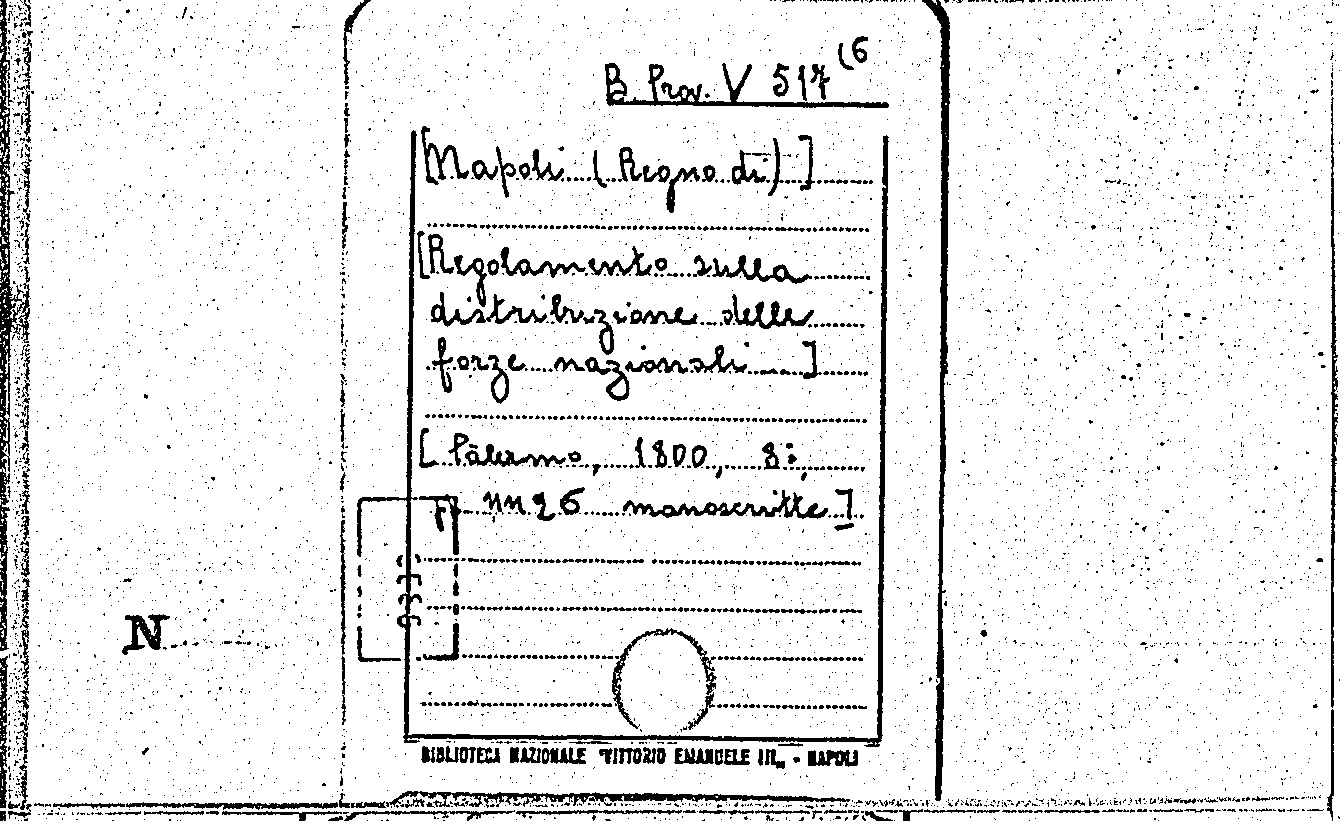 B. Prov. V 517 (6
[Napoli (Regno di)]
[Regolamento sulla
distribuzione delle
forze nazionali ...]
[Palermo, 1800, 8°,
ff. nn 26 manoscritte]
N
BIBLIOTECA NAZIONALE "VITTORIO EMANUELE III„ - NAPOLI